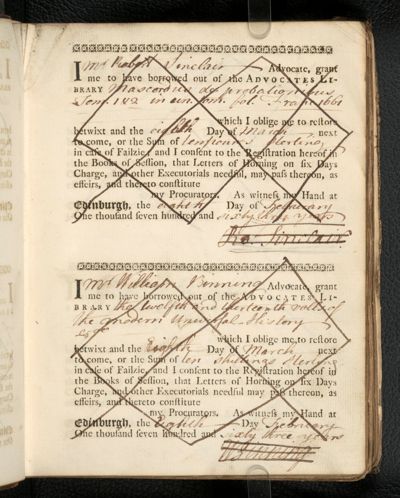 I Mr Robert Sinclair Advocate, grant
me to have borrowed out of the ADVOCATES LI-
BRARY Mascardus de probationibus
Tom. 1 & 2 in un. vol. fol. Franc. 1661
which I oblige me to restore
betwixt and the eighth Day of March next
to come, or the Sum of Sterling
in case of Failzie, and I consent to the Registration hereof in
the Books of Session, that Letters of Horning on six Days
Charge, and other Executorials needful, may pass thereon, as
effeirs, and thereto constitute
my Procurators. As witness my Hand at
Edinburgh, the eighth Day of February
One thousand seven hundred and sixty three years
Ro. Sinclair
I Mr William Binning Advocate, grant
me to have borrowed out of the ADVOCATES LI-
BRARY the twelfth and thirteenth volls of
the modern Universal History
which I oblige me to restore
betwixt and the Eighth Day of March next
to come, or the Sum of ten shillings Sterling
in case of Failzie, and I consent to the Registration hereof in
the Books of Session, that Letters of Horning on six Days
Charge, and other Executorials needful may pass thereon, as
effeirs, and thereto constitute
my Procurators. As witness my Hand at
Edinburgh, the Eighth Day February
One thousand seven hundred and sixty three years